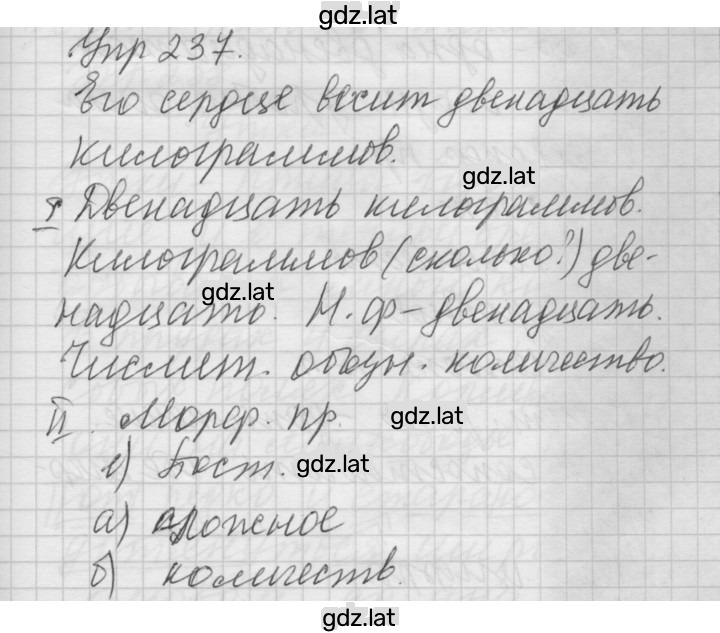 gdz.lat
Упр 237.
Его сердце весит двенадцать
килограммов.
gdz.lat
I Двенадцать килограммов.
Килограммов (сколько?) две-
gdz.lat
надцать. Н. ф - двенадцать.
Числит. обозн. количество.
II. Морф. пр.
gdz.lat
1) Пост.
gdz.lat
а) сложное
б) количеств.
gdz.lat